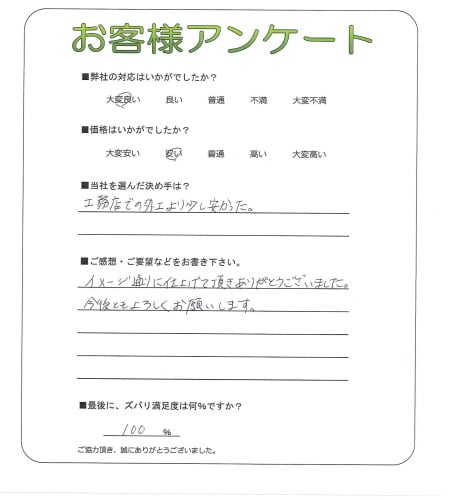 お客様アンケート
■弊社の対応はいかがでしたか?
大変良い 良い 普通 不満 大変不満
■価格はいかがでしたか?
大変安い 安い 普通 高い 大変高い
■当社を選んだ決め手は?
工務店での外工より少し安かった。
■ご感想・ご要望などをお書き下さい。
イメージ通りに仕上げて頂きありがとうございました。
今後ともよろしくお願いします。
■最後に、ズバリ満足度は何%ですか?
100 %
ご協力頂き、誠にありがとうございました。